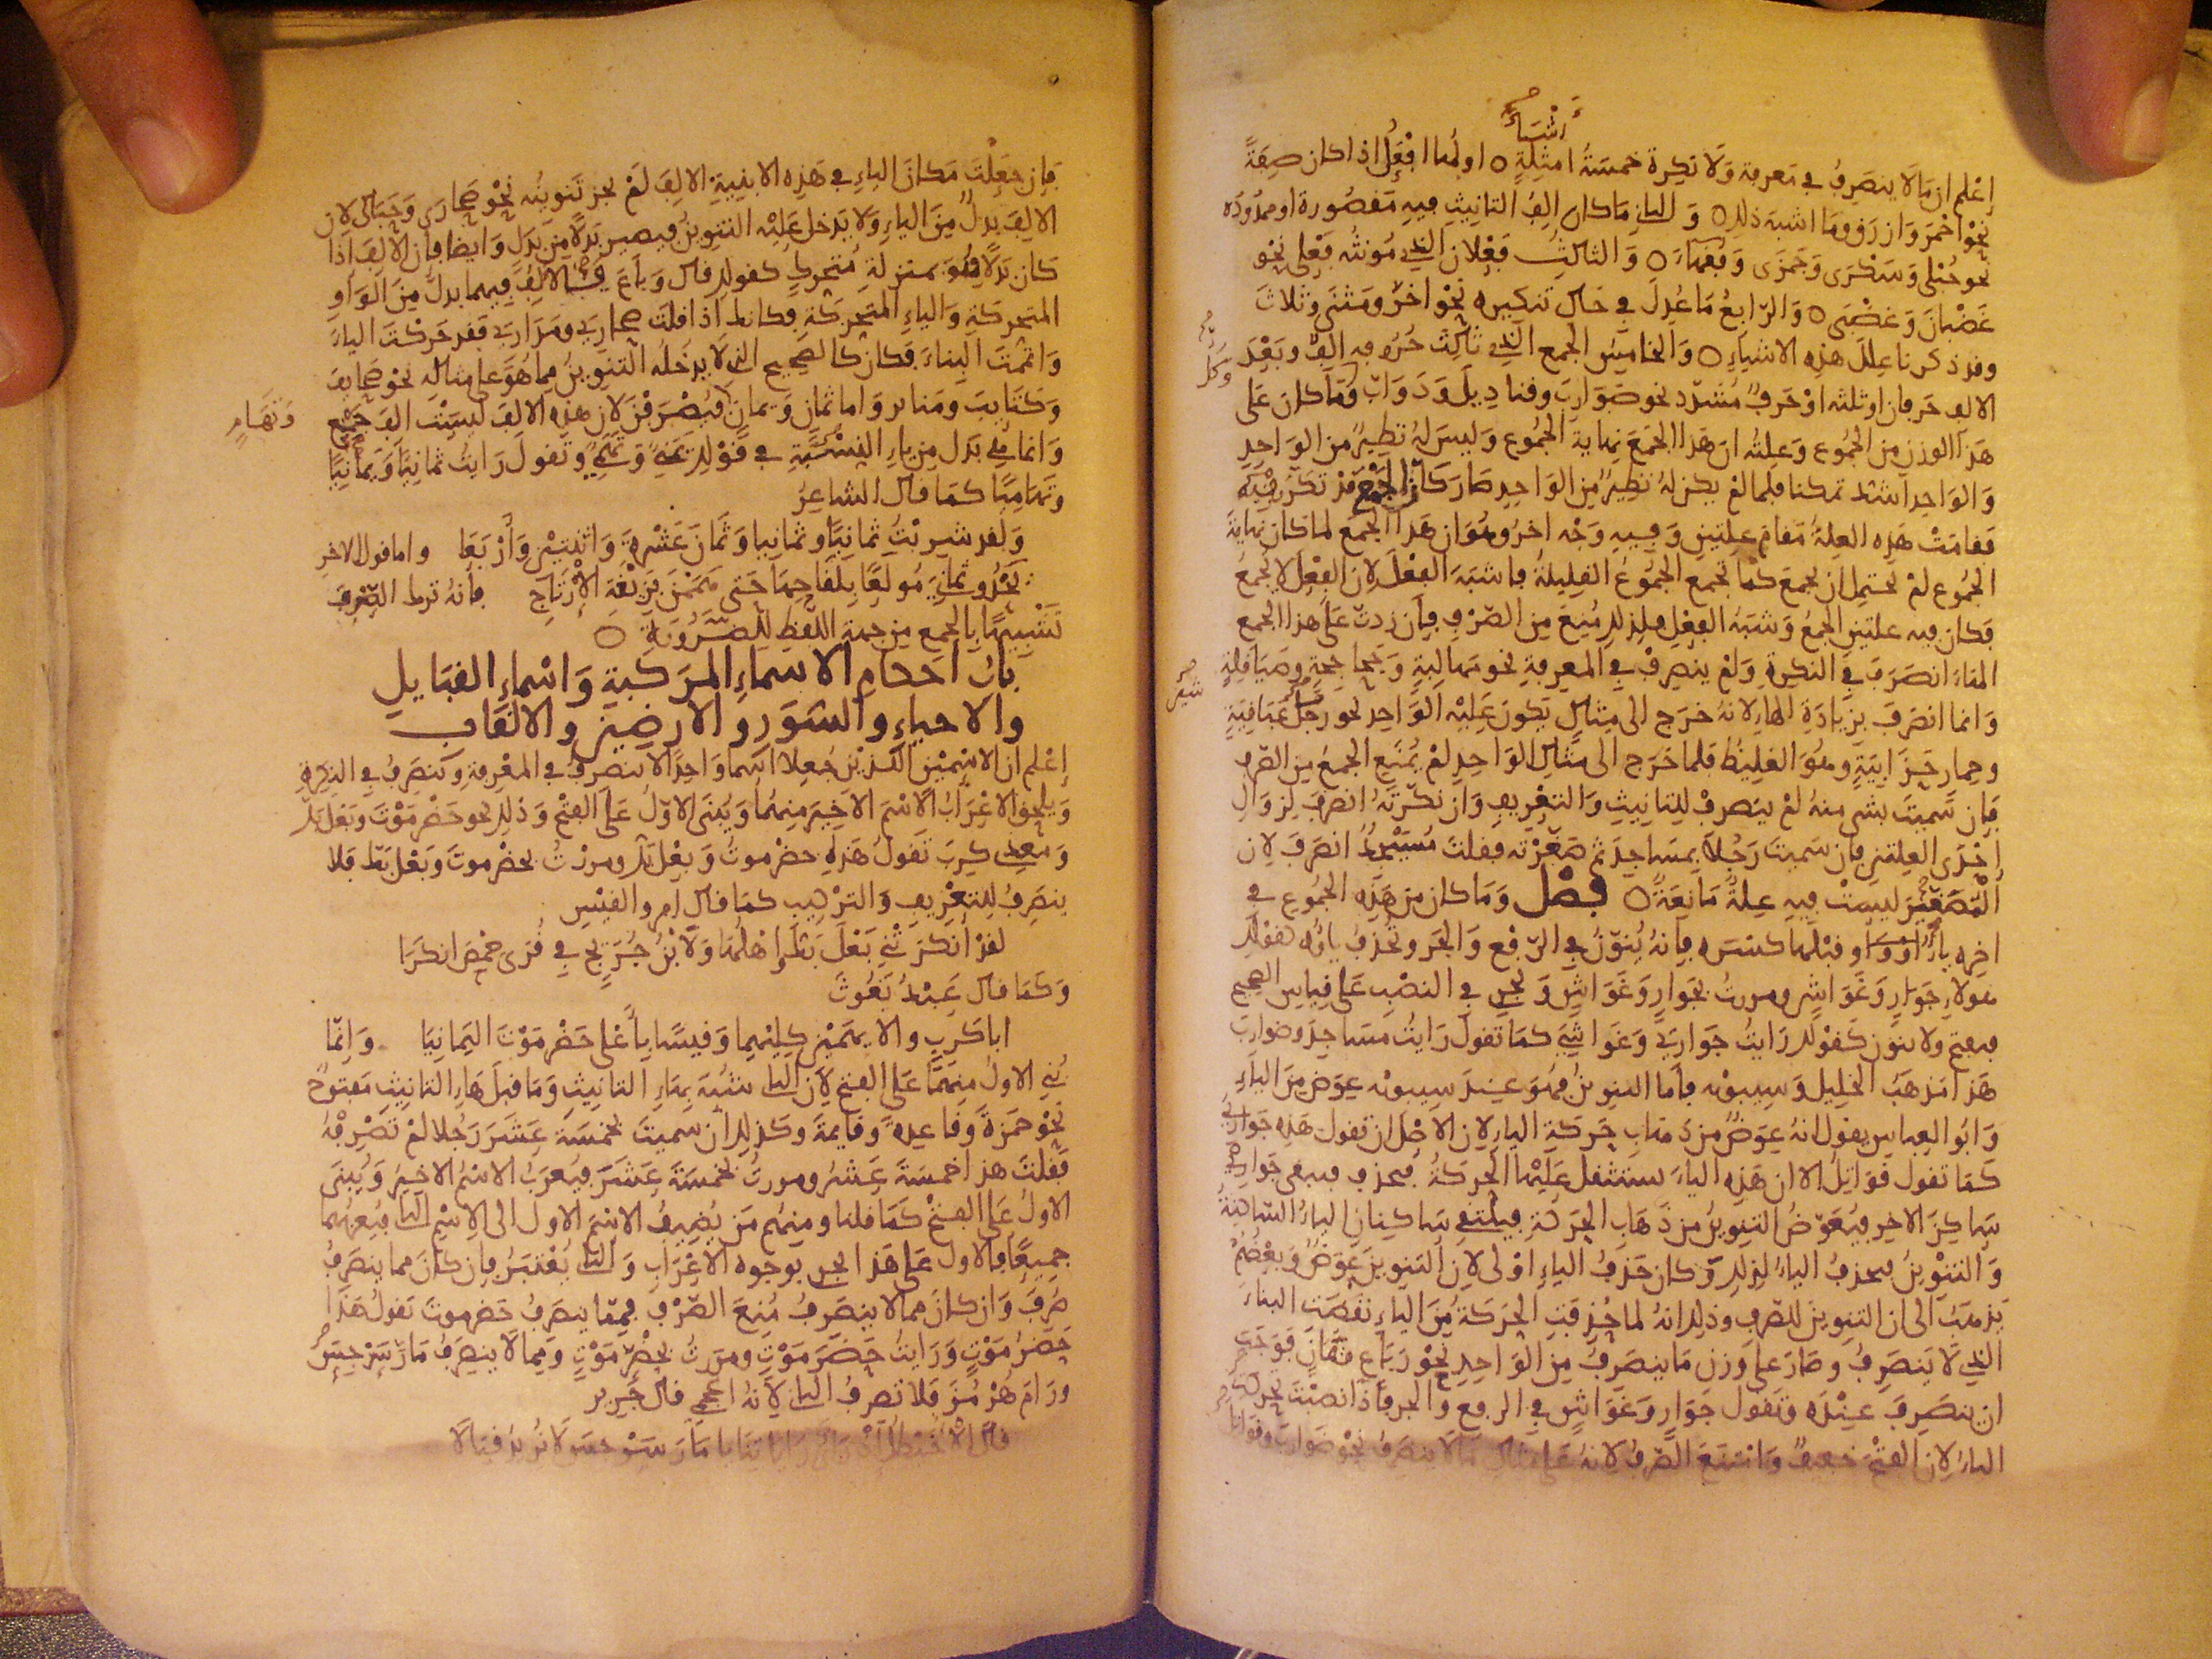 أشياء صح
إعلم ان ما لا ينصرف في معرفة ولا نكرة خمسة امثلة ٥ اولها افعل اذا كان صفة
نحو احمر وازرق وما اشبه ذلك ٥ والثاني ما كان الف التانيث فيه مقصورة او ممدودة
نحو حبلى وسكرى وجمزى وفقهاء ٥ والثالث فعلان الذي مونثه فعلى نحو
غضبان وغضبى ٥ والرابع ما عدل في حال تنكيره نحو اخر ومثنى وثلاث
وقد ذكرنا علل هذه الاشياء ٥ والخامس الجمع الذي ثالث حروفه الف وبعد
الالف حرفان او ثلثه او حرف مشدد نحو ضوارب وقناديل ودواب وما كان على
هذا الوزن من الجموع وعلته ان هذا الجمع نهاية الجموع وليس له نظير من الواحد
والواحد اشد تمكنا فلما لم يكن له نظير من الواحد صار كان الجمع قد تكرر فيه
فقامت هذه العلة مقام علتين وفيه وجه اخر وهو ان هذا الجمع لما كان نهاية
الجموع لم يحتمل ان يجمع كما تجمع الجموع القليلة فاشبه الفعل لان الفعل لا يجمع
فكان فيه علتين الجمع وشبه الفعل فلذلك منع من الصرف فان زدت على هذا الجمع
الهاء انصرف في النكرة ولم ينصرف في المعرفة نحو مهالبة وجحاجحة وصياقلة
وانما انصرف بزيادة الهاء لانه خرج الى مثال يكون عليه الواحد نحو رجل عباقية
وحمار حزابية وهو الغليظ فلما خرج الى مثال الواحد لم يمنع الجمع من الصرف
فان سميت بشي منه لم ينصرف للتانيث والتعريف وان نكرته انصرف لزوال
إحدى العلتين فان سميت رجلا بمساجد ثم صغرته فقلت مسيجد انصرف لان
التصغير ليست فيه علة مانعة ٥ فصل وما كان من هذه الجموع في
اخره ياء او واو قبلها كسره فانه ينون في الرفع والجر وتحذف ياؤه كقولك
هولاء جوار وغواش ومررت بجوار وغواش ويجري في النصب على قياس الصحيح
فيفتح ولا ينون كقولك رايت جواري وغواشي كما تقول رايت مساجد وضوارب
هذا مذهب الخليل وسيبويه فأما التنوين فهو عند سيبويه عوض من الياء
وابو العباس يقول انه عوض من ذهاب حركة الياء لان الاصل ان تقول هذه جواري
كما تقول قوايل الا ان هذه الياء يستثقل عليها الحركة فتحذف فيبقى جواري
ساكن الاخر فيعوض التنوين من ذهاب الحركة فيلتقي ساكنان الياء الساكنة
والتنوين فيحذف الياء لذلك وكان حذف الياء اولى لان التنوين عوض وبعضهم
يذهب الى ان التنوين للصرف وذلك انه لما حذفت الحركة من الياء نقصت البناء
الذي لا ينصرف وصار على وزن ما ينصرف من الواحد نحو رباع وثمان فوجب
ان ينصرف عنده وتقول جوار وغواش في الرفع والجر فاذا نصبت تحركت
الياء لان الفتح خفيف وامتنع الصرف لانه على مثال ما لا ينصرف نحو ضوارب وقوابل
فان جعلت مكان الياء في هذه الابنية الالف لم يجز تنوينه نحو صحارى وحبالى لان
الالف بدل من الياء ولا يدخل عليه التنوين فيصير بدلا من بدل وايضا فان الالف اذا
كان بدلا فهو بمنزلة متحرك كقولك قال وباع فالالف فيهما بدل من الواو
المتحركة والياء المتحركة فكانك اذا قلت صحاري ومداري فقد حركت الياء
واتممت البناء فكان كالصحيح الذي لا يدخله التنوين مما هو على مثاله نحو صحايف
وكتايب ومنابر واما ثمان ويمان فيصرفن لان هذه الالف ليست الف جمع
وتهام
وانما هي بدل من ياء النسبة في قولك يمني وتهمي وتقول رايت ثمانيا ويمانيا
وتهاميا كما قال الشاعر
ولقد شربت ثمانيا وثمانيا وثمان عشرة واثنتين وأربعا واما قول الاخر
يحدو ثماني مولعا بلقاحها حتى هممن بزيغة الارتاج فانه ترك الصرف
تشبيها بالجمع من جهة اللفظ للضرورة ٥
باب احكام الاسماء المركبة واسماء القبايل
والاحياء والسور والارضين والالقاب
إعلم ان الاسمين اللذين جعلا اسما واحدا لا ينصرف في المعرفة وينصرف في النكرة
ويلحق الاعراب الاسم الاخير منهما ويبنى الاول على الفتح وذلك نحو حضرموت وبعلبك
ومعدي كرب تقول هذه حضرموت وبعلبك ومررت بحضرموت وبعلبك فلا
ينصرف للتعريف والتركيب كما قال امرو القيس
لقد أنكرتني بعلبك واهلها ولابن جريج في قرى حمص انكرا
وكما قال عبد يغوث
ابا كرب والايهمين كليهما وقيسا بأعلى حضرموت اليمانيا وانما
بني الاول منهما على الفتح لان الثاني شبه بهاء التانيث وما قبل هاء التانيث مفتوح
نحو حمزة وقاعدة وقايمة وكذلك ان سميت بخمسة عشر رجلا لم تصرفه
فقلت هذا خمسة عشر ومررت بخمسة عشر فيعرب الاسم الاخير ويبنى
الاول على الفتح كما قلنا ومنهم من يضيف الاسم الاول الى الاسم الثاني فيعربهما
جميعا فالاول على هذا يجري بوجوه الاعراب والثاني يعتبر فان كان مما ينصرف
صرف وان كان مما لا ينصرف منع الصرف فمما ينصرف حضرموت تقول هذا
حضرموت ورايت حضرموت ومررت بحضرموت ومما لا ينصرف مارسرجس
ورام هرمز فلا تصرف الثاني لانه اعجمي قال جرير
قال الاخيطل اذ راى راياتنا يا مارسرجس لا نريد قتالا